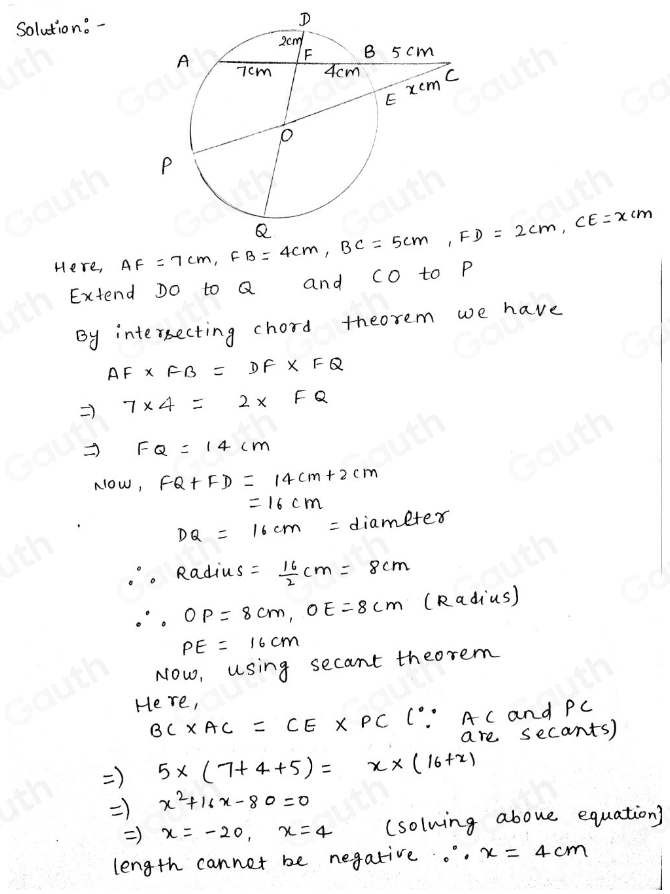 Solution:-
D
2cm
A F B 5cm
7cm 4cm C
E xcm
O
P
Q
Here, AF = 7cm, FB = 4cm, BC = 5cm, FD = 2cm, CE = xcm
Extend DO to Q and CO to P
By intersecting chord theorem we have
AF × FB = DF × FQ
=) 7×4 = 2× FQ
=) FQ = 14 cm
Now, FQ + FD = 14cm+2cm
= 16 cm
DQ = 16cm = diameter
∴ Radius = 16/2 cm = 8cm
∴ OP = 8cm, OE = 8cm (Radius)
PE = 16cm
Now, using secant theorem
Here,
BC × AC = CE × PC (∵ AC and PC are secants)
=) 5× (7+4+5) = x × (16+x)
=) x²+16x-80=0
=) x = -20, x=4 (solving above equation)
length cannot be negative ∴ x = 4cm
Gauth